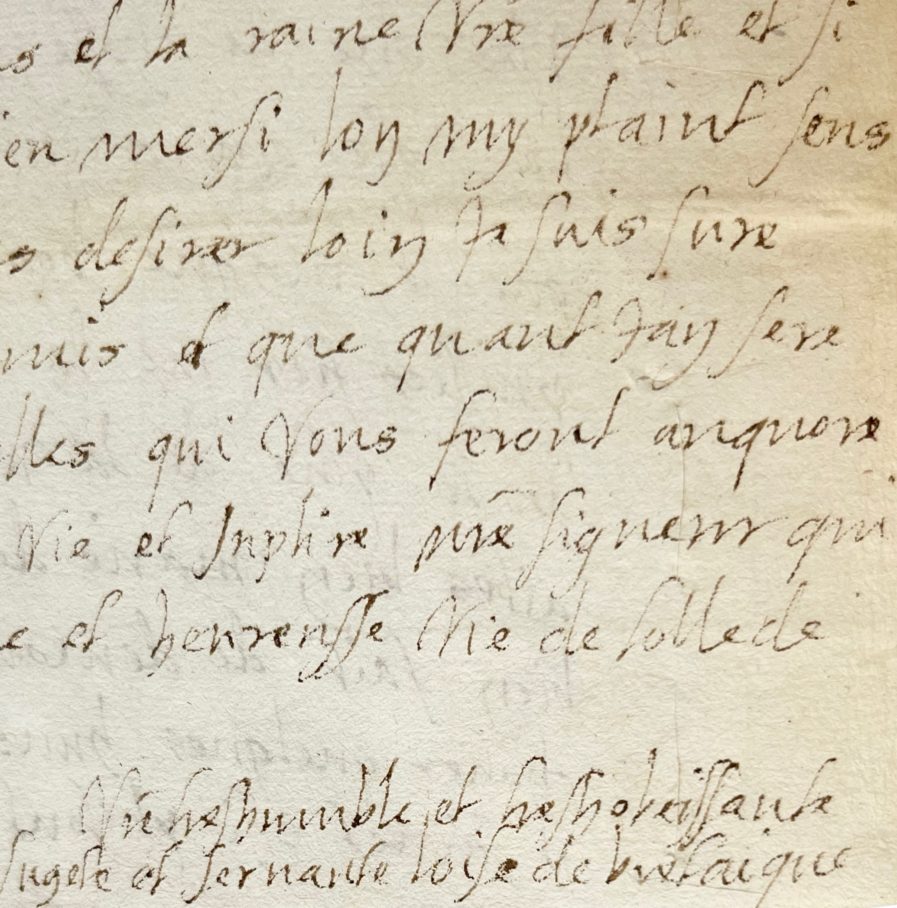 et la raine Vre fille et si
mersi lon my plaint sens
desirer loin Ja suis sure
et que quant Jan sere
qui Vous feront anquore
Vie et Suplire nre signeur qui
et heureusse Vie de tollede
Vre treshumble et treshobeissante
sugete et servante loise de bretaigne